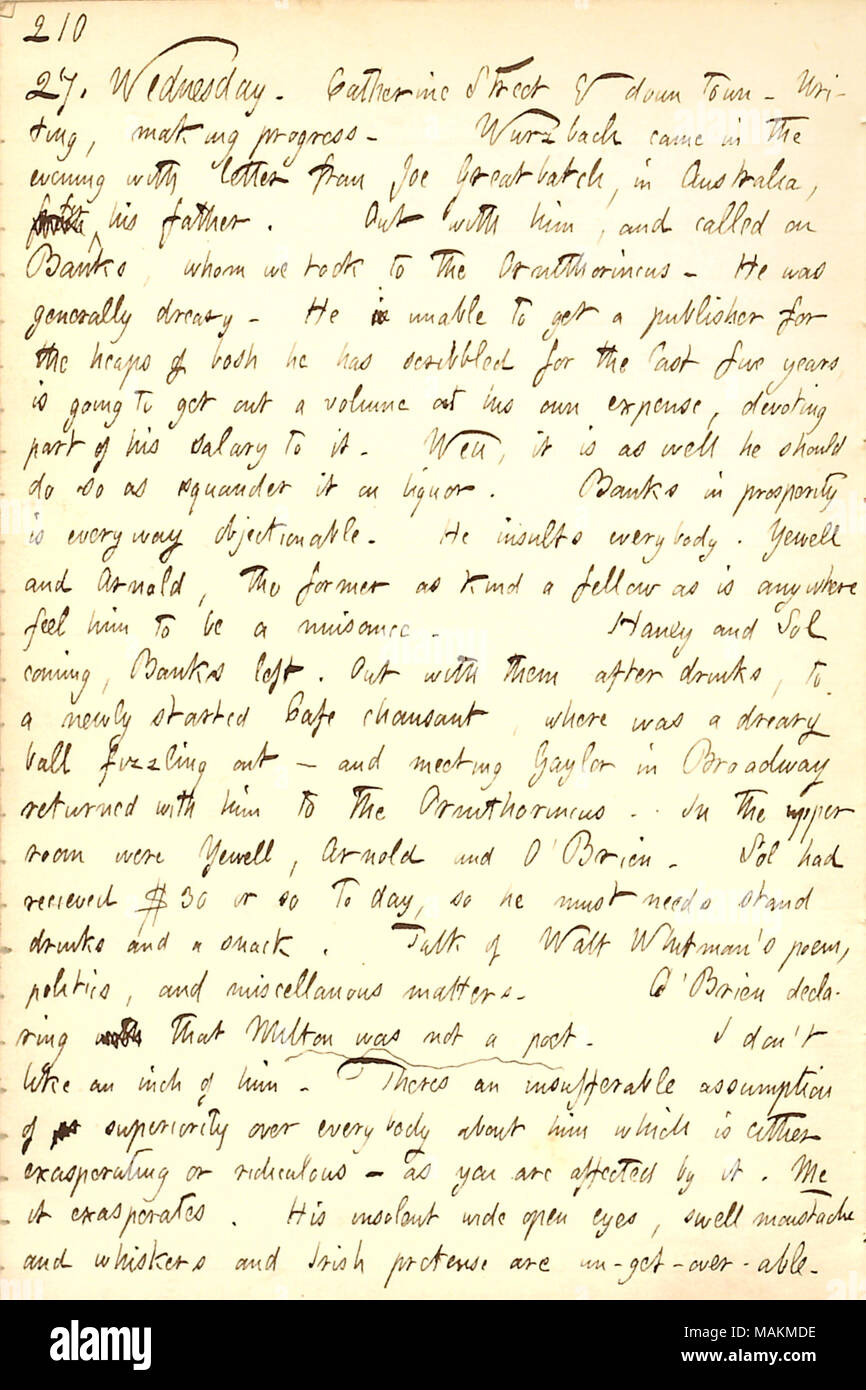 210
27. Wednesday. Catherine Street & down town. Wri-
ting, making progress. Wurzbach came in the
evening with letter from Joe Greatbatch, in Australia,
his father. Out with him, and called on
Banks, whom we took to the Ornitthorincus. He was
generally dreary. He is unable to get a publisher for
the heaps of bosh he has scribbled for the last five years,
is going to get out a volume at his own expense, devoting
part of his salary to it. Well, it is as well he should
do so as squander it on liquor. Banks in prosperity
is everyway objectionable. He insults everybody. Yewell
and Arnold, the former as kind a fellow as is anywhere
feel him to be a nuisance. Haney and Sol
coming, Banks left. Out with them after drinks, to
a newly started Cafe chansant, where was a dreary
ball fizzling out — and meeting Gaylor in Broadway
returned with him to the Ornithorincus. In the upper
room were Yewell, Arnold and O'Brien. Sol had
recieved $30 or so to day, so he must needs stand
drinks and a snack. Talk of Walt Whitman's poem,
politics, and miscellanous matters. O'Brien decla-
ring that Milton was not a poet. I don't
like an inch of him. Theres an insufferable assumption
of superiority over everybody about him which is either
exasperating or ridiculous — as you are affected by it. Me
it exasperates. His insolent wide open eyes, swell moustache
and whiskers and Irish pretense are un-get-over-able.
alamy
Image ID: MAKMDE
www.alamy.com